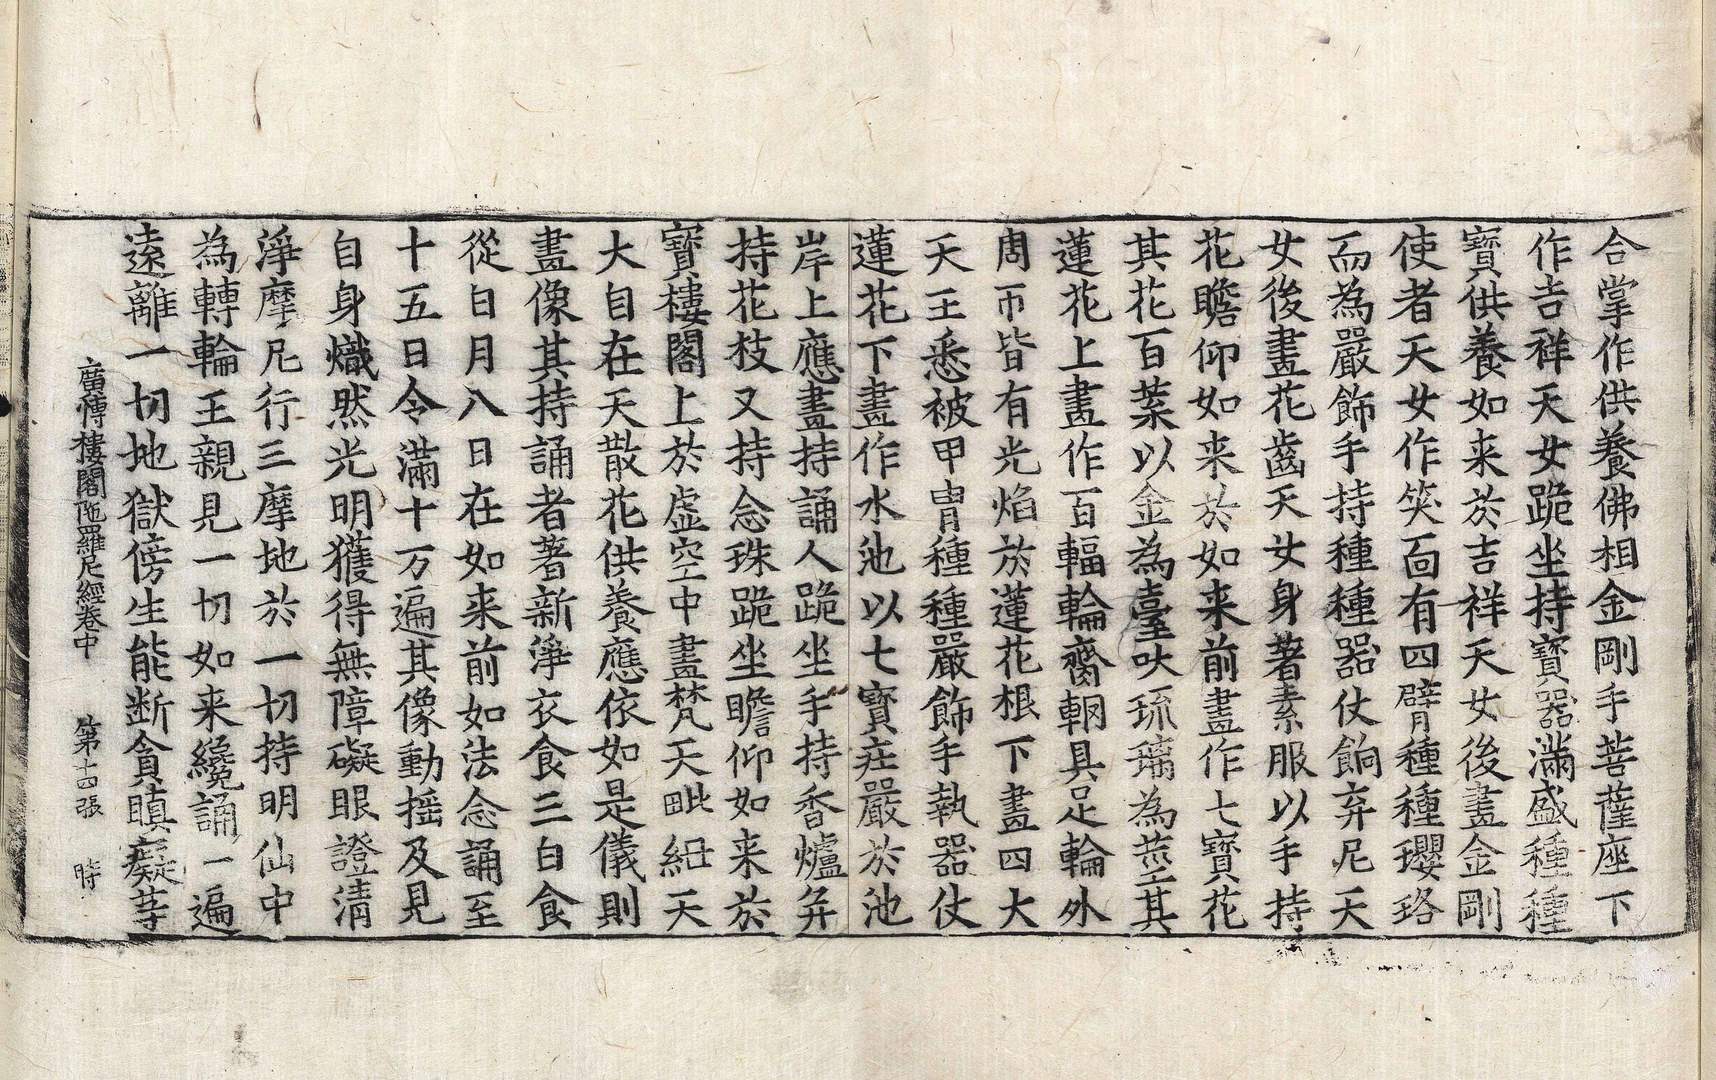 合掌作供養佛相金剛手菩薩座下
作吉祥天女跪坐持寶器滿盛種種
寶供養如来於吉祥天女後畫金剛
使者天女作笑面有四臂種種瓔珞
而為嚴飾手持種種器仗餉弃尼天
女後畫花齒天女身著素服以手持
花瞻仰如来於如来前畫作七寶花
其花百葉以金為臺吠琉璃為莖其
蓮花上畫作百輻輪齊輞具足輪外
周帀皆有光焰於蓮花根下畫四大
天王悉被甲冑種種嚴飾手執器仗
蓮花下畫作水池以七寶莊嚴於池
岸上應畫持誦人跪坐手持香爐弁
持花枝又持念珠跪坐瞻仰如来於
寶樓閣上於虛空中畫梵天毗紐天
大自在天散花供養應依如是儀則
畫像其持誦者著新淨衣食三白食
從白月八日在如来前如法念誦至
十五日令滿十万遍其像動揺及見
自身熾然光明獲得無障礙眼證清
淨摩尼行三摩地於一切持明仙中
為轉輪王親見一切如来纔誦一遍
遠離一切地獄傍生能断貪瞋癡等
廣博樓閣陁羅尼經卷中 第十四張 時